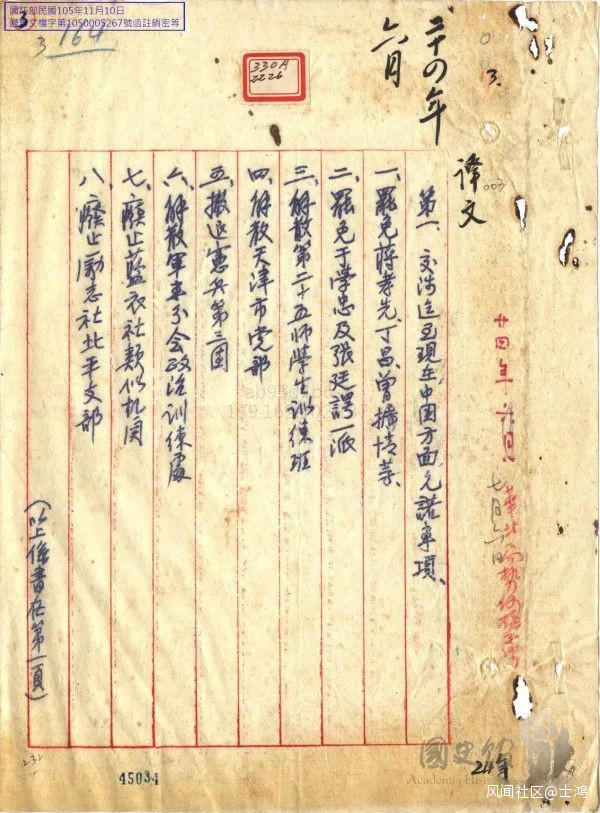 國防部民國105年11月10日
國軍文檔字第1050005267號函註銷密等
3
3
164
330A
2226
二十四年
六月
3.
003
譯文
廿四年
七月六日
第一、交涉迄至現在、中國方面允諾事項、
一、罷免蔣孝先丁昌曾擴情等、
二、罷免于學忠及張廷諤一派
三、解散第二十五師學生訓練班
四、解散天津市党部
五、撤退憲兵第三團
六、解散軍事分會政治訓練處
七、廢止藍衣社類似机関
八、癈止勵志社北平支部
（以上係書在第一頁）
231
45034
國史館
Academia Historica
24年
风闻社区@士鸿